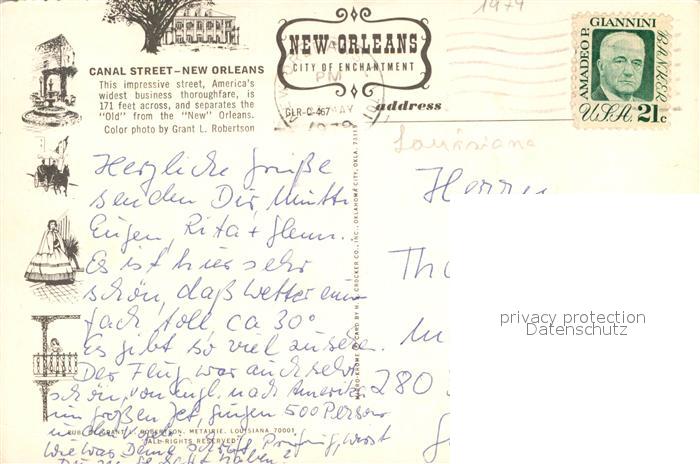 1974
NEW ORLEANS
CITY OF ENCHANTMENT
AMADEO P. GIANNINI
BANKER
U.S.A. 21c
CANAL STREET—NEW ORLEANS
This impressive street, America's
widest business thoroughfare, is
171 feet across, and separates the
"Old" from the "New" Orleans.
Color photo by Grant L. Robertson
GLR-C-467
PM
MAY
address
Louisiana
Herzliche Grüße
senden Dir, Mutti
Eugen, Rita + Glenn.
Es ist hier sehr
schön, daß Wetter ein
fach toll, ca 30°
Es gibt so viel zu sehen.
Der Flug war auch sehr
schön, von Engl. nach Amerika
im großen Jet, gingen 500 Person
Wie was Deine Prüfung, wirst
Herrn
280
privacy protection
Datenschutz
GRANT L. ROBERTSON, METAIRIE, LOUISIANA 70001
ALL RIGHTS RESERVED
CROCKER CO., INC., OKLAHOMA CITY, OKLA. 73111